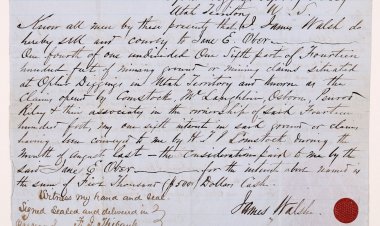 Utah Territory U. S.
Know all men by these presents that I James Walsh do
hereby sell and convey to Jane E. Ober
One fourth of one undivided One Sixth part of Fourteen
hundred feet of mining ground or mining claims situated
at Ophir Diggings in Utah Territory and known as the
Claims opened by Comstock, McLaughlin, Osborn, Penrod
Riley & their associates in the ownership of said Fourteen
hundred feet, my one sixth interest in said ground or claims
having been conveyed to me by H. T. P. Comstock during the
Month of August last — the Consideration paid to me by the
said Jane E. Ober for the interest above named is
the sum of Five Thousand ($5000) Dollars Cash.
Witness my hand and seal
Signed sealed and delivered in
James Walsh